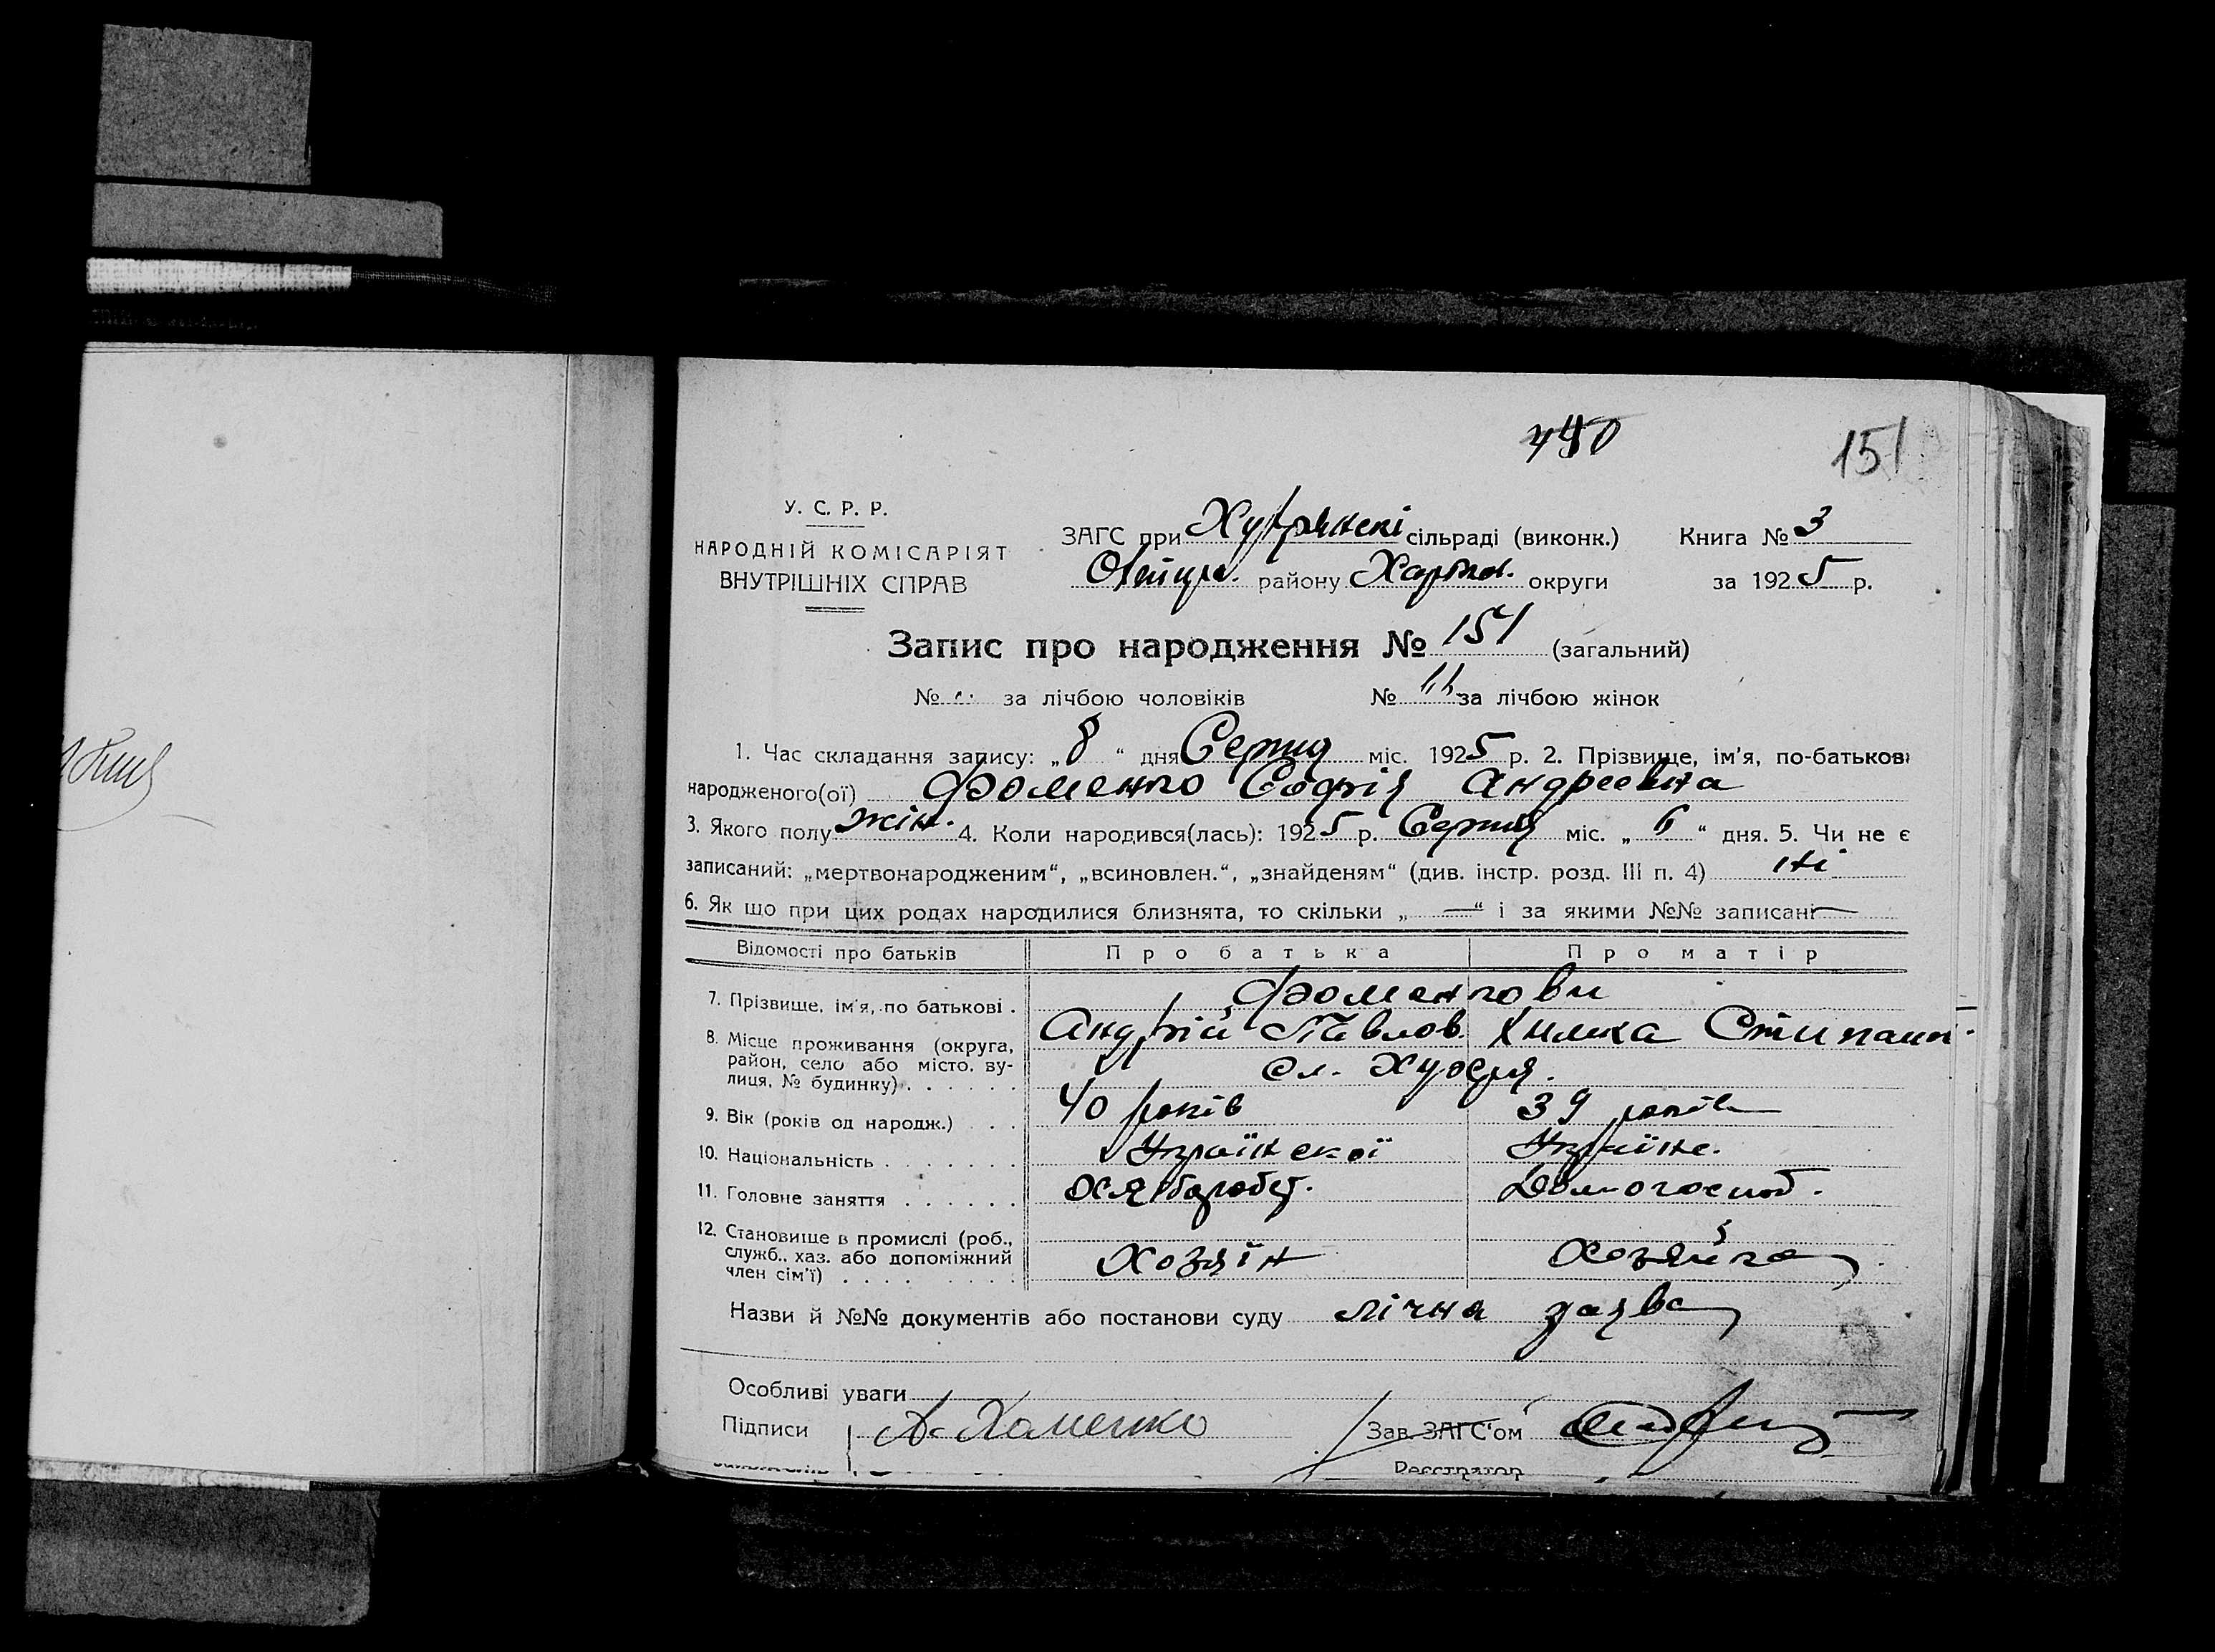 151
У. С. Р. Р.
НАРОДНІЙ КОМІСАРІЯТ
ВНУТРІШНІХ СПРАВ
ЗАГС при сільраді (виконк.) Книга № 3
району Харков. округи за 1925 р.
Запис про народження № 151 (загальний)
№ за лічбою чоловіків № за лічбою жінок
1. Час складання запису: „8“ дня Серпня міс. 1925 р. 2. Прізвище, ім'я, по-батькові
народженого(ої) Фоменко Софія Андреевна
3. Якого полу жін. 4. Коли народився(лась): 1925 р. Серпня міс. „6“ дня. 5. Чи не є
записаний: „мертвонародженим“, „всиновлен.“, „знайденям“ (див. інстр. розд. III п. 4) ні
6. Як що при цих родах народилися близнята, то скільки „—“ і за якими №№ записані —
Відомості про батьків Про батька Про матір
7. Прізвище, ім'я, по батькові . Фоменкови
Андрій Павлов. Химка Стипан
8. Місце проживання (округа,
район, село або місто, ву-
лиця, № будинку) . . . . . . сл.
9. Вік (років од народж.) . . . 40 років 39 років
10. Національність . . . . . . . Українскої Українс.
11. Головне заняття . . . . . . Домогоспод.
12. Становище в промислі (роб.,
служб., хаз. або допоміжний
член сім'ї) . . . . . . . . . Хозяїн Хозяйка
Назви й №№ документів або постанови суду лічна заява
Особливі уваги
Підписи А. Хоменко Зав. ЗАГС'ом
Реєстратор